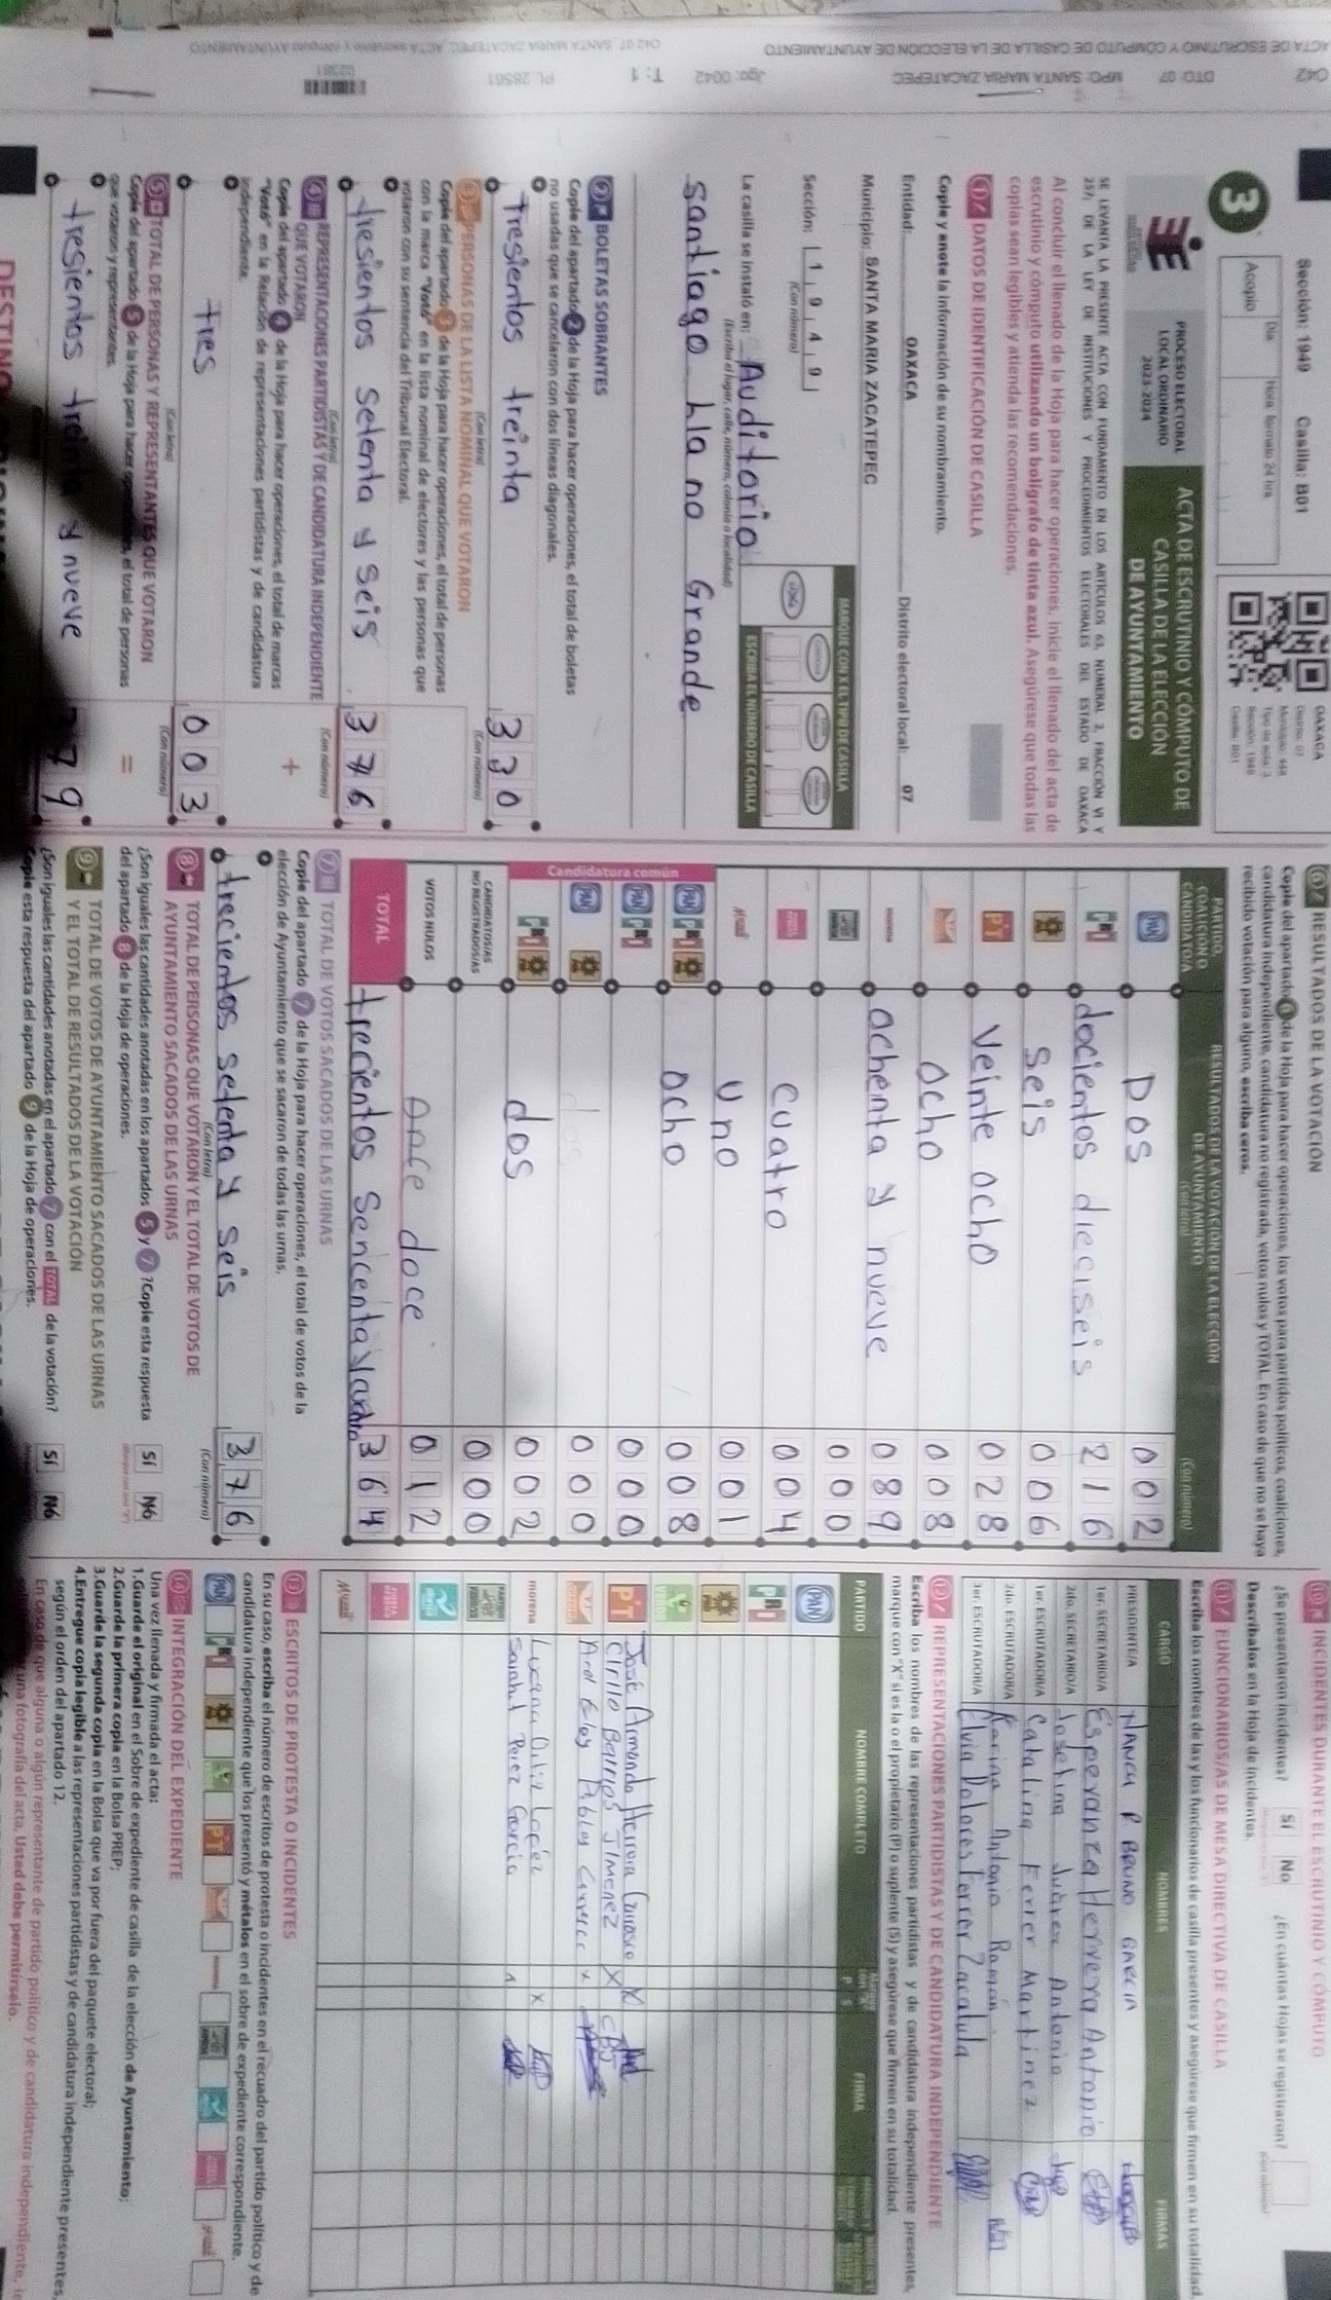 042 DTO: 07 MPO: SANTA MARIA ZACATEPEC Jgo: 0042 T: 1 PL 28561
ACTA DE ESCRUTINIO Y CÓMPUTO DE CASILLA DE LA ELECCIÓN DE AYUNTAMIENTO
Sección: 1949 Casilla: B01
OAXACA
3
Acopio
Día
Hora formato 24 hrs
PROCESO ELECTORAL
LOCAL ORDINARIO
2023-2024
ACTA DE ESCRUTINIO Y CÓMPUTO DE
CASILLA DE LA ELECCIÓN
DE AYUNTAMIENTO
SE LEVANTA LA PRESENTE ACTA CON FUNDAMENTO EN LOS ARTÍCULOS 63, NUMERAL 2, FRACCIÓN VI Y
257; DE LA LEY DE INSTITUCIONES Y PROCEDIMIENTOS ELECTORALES DEL ESTADO DE OAXACA
Al concluir el llenado de la Hoja para hacer operaciones, inicie el llenado del acta de
escrutinio y cómputo utilizando un bolígrafo de tinta azul. Asegúrese que todas las
copias sean legibles y atienda las recomendaciones.
1 DATOS DE IDENTIFICACIÓN DE CASILLA
Copie y anote la información de su nombramiento.
Entidad: OAXACA Distrito electoral local: 07
Municipio: SANTA MARIA ZACATEPEC
Sección: 1 9 4 9
(Con número)
MARQUE CON X EL TIPO DE CASILLA
ESCRIBA EL NÚMERO DE CASILLA
La casilla se instaló en: Auditorio
(Escriba el lugar, calle, número, colonia o localidad)
santiago lla no Grande
2 BOLETAS SOBRANTES
Copie del apartado 2 de la Hoja para hacer operaciones, el total de boletas
no usadas que se cancelaron con dos líneas diagonales.
Tresientos treinta 330
(Con letra) (Con número)
3 PERSONAS DE LA LISTA NOMINAL QUE VOTARON
Copie del apartado 3 de la Hoja para hacer operaciones, el total de personas
con la marca "Votó" en la lista nominal de electores y las personas que
votaron con su sentencia del Tribunal Electoral.
tresientos setenta y seis 376
(Con letra) (Con número)
4 REPRESENTACIONES PARTIDISTAS Y DE CANDIDATURA INDEPENDIENTE
QUE VOTARON
Copie del apartado 4 de la Hoja para hacer operaciones, el total de marcas
"Votó" en la Relación de representaciones partidistas y de candidatura
independiente.
+
tres 003
(Con letra) (Con número)
5 TOTAL DE PERSONAS Y REPRESENTANTES QUE VOTARON
Copie del apartado 5 de la Hoja para hacer operaciones, el total de personas
que votaron y representantes.
=
tresientos treinta y nueve 379
6 RESULTADOS DE LA VOTACIÓN
Copie del apartado 6 de la Hoja para hacer operaciones, los votos para partidos políticos, coaliciones,
candidatura independiente, candidatura no registrada, votos nulos y TOTAL. En caso de que no se haya
recibido votación para alguno, escriba ceros.
PARTIDO, COALICIÓN O CANDIDATO/A
RESULTADOS DE LA VOTACIÓN DE LA ELECCIÓN DE AYUNTAMIENTO
(Con letra) (Con número)
PAN Dos 002
PRI docientos dieciseis 216
PRD Seis 006
PT Veinte ocho 028
ocho 008
morena ochenta y nueve 089
000
cuatro 004
Mujer uno 001
Candidatura común
PAN PRI PRD ocho 008
PAN PRI 000
PAN PRD 000
PRI PRD dos 002
CANDIDATOS/AS NO REGISTRADOS/AS 000
VOTOS NULOS Once doce 012
TOTAL trecientos sencenta y cuatro 364
7 TOTAL DE VOTOS SACADOS DE LAS URNAS
Copie del apartado 7 de la Hoja para hacer operaciones, el total de votos de la
elección de Ayuntamiento que se sacaron de todas las urnas.
trecientos setenta y seis 376
(Con letra) (Con número)
8 TOTAL DE PERSONAS QUE VOTARON Y EL TOTAL DE VOTOS DE
AYUNTAMIENTO SACADOS DE LAS URNAS
¿Son iguales las cantidades anotadas en los apartados 5 y 7? Copie esta respuesta
del apartado 8 de la Hoja de operaciones.
Sí No
9 TOTAL DE VOTOS DE AYUNTAMIENTO SACADOS DE LAS URNAS
Y EL TOTAL DE RESULTADOS DE LA VOTACIÓN
¿Son iguales las cantidades anotadas en el apartado 7 con el TOTAL de la votación?
Copie esta respuesta del apartado 9 de la Hoja de operaciones.
Sí No
10 INCIDENTES DURANTE EL ESCRUTINIO Y CÓMPUTO
¿Se presentaron incidentes? Sí No ¿En cuántas Hojas se registraron?
Descríbalos en la Hoja de incidentes.
11 FUNCIONARIOS/AS DE MESA DIRECTIVA DE CASILLA
Escriba los nombres de las y los funcionarios de casilla presentes y asegúrese que firmen en su totalidad.
CARGO NOMBRES FIRMAS
PRESIDENTE/A NANCY P BRUNO GARCIA
1er. SECRETARIO/A Esperanza Herrera Antonio
2do. SECRETARIO/A Josefina Juárez Antonio
1er. ESCRUTADOR/A Catalina Ferrer Martinez
2do. ESCRUTADOR/A Karina Antonio Román
3er. ESCRUTADOR/A Elvia Dolores Ferrer Zacatula
12 REPRESENTACIONES PARTIDISTAS Y DE CANDIDATURA INDEPENDIENTE
Escriba los nombres de las representaciones partidistas y de candidatura independiente presentes,
marque con "X" si es la o el propietario (P) o suplente (S) y asegúrese que firmen en su totalidad.
PARTIDO NOMBRE COMPLETO P S FIRMA
PAN
PRI
PRD
VERDE
PT José Armando Herrera X
Cirilo Barrios Jimenez X
X
morena López X
Perez Garcia
Mujer
13 ESCRITOS DE PROTESTA O INCIDENTES
En su caso, escriba el número de escritos de protesta o incidentes en el recuadro del partido político y de
candidatura independiente que los presentó y métalos en el sobre de expediente correspondiente.
PAN PRI PRD PT
14 INTEGRACIÓN DEL EXPEDIENTE
Una vez llenada y firmada el acta:
1.Guarde el original en el Sobre de expediente de casilla de la elección de Ayuntamiento;
2.Guarde la primera copia en la Bolsa PREP;
3.Guarde la segunda copia en la Bolsa que va por fuera del paquete electoral;
4.Entregue copia legible a las representaciones partidistas y de candidatura independiente presentes,
según el orden del apartado 12.
En caso de que alguna o algún representante de partido político y de candidatura independiente,
una fotografía del acta, Usted debe permitírselo.